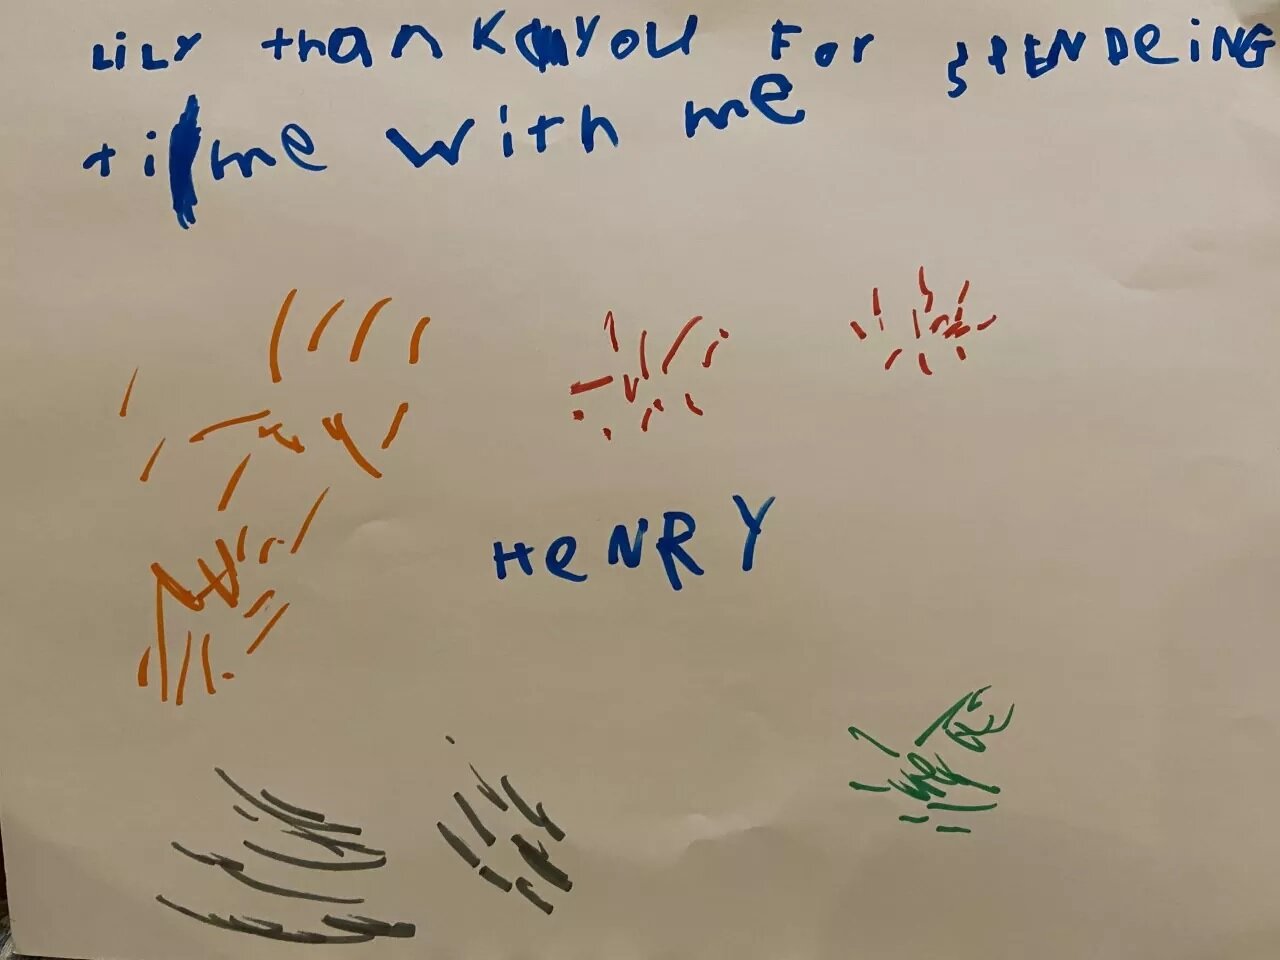 LiLY thank you For SPENDeiNG
time with me
HeNRY